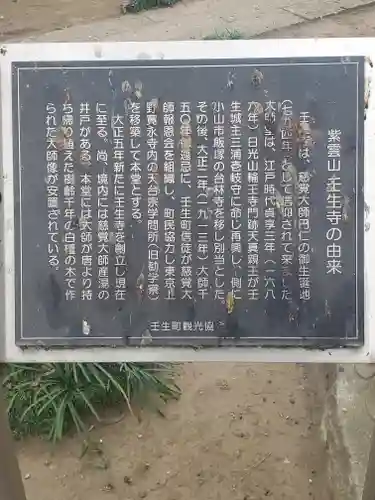 紫雲山壬生寺の由来
壬生寺は、慈覚大師円仁の御生誕地
として信仰されて来ました
大師は、江戸時代貞享三年（一六八
六年）日光山輪王寺門跡天真親王が壬
生城主三浦壱岐守に命じ再興し、側に
小山市飯塚の台林寺を移し別当とした。
その後、大正二年（一九一三年）大師千
五〇年御遠忌に、壬生町信徒が慈覚大
師報恩会を組織し、町民協力し東京上
野寛永寺内の天台宗学問所（旧勧学寮）
を移築して本堂とする。
大正五年新たに壬生寺を創立し現在
に至る。尚、境内には慈覚大師産湯の
井戸があり、本堂には大師が唐より持
ち帰り植えた樹齢千年の白檀の木で作
られた大師像が安置されている。
壬生町観光協